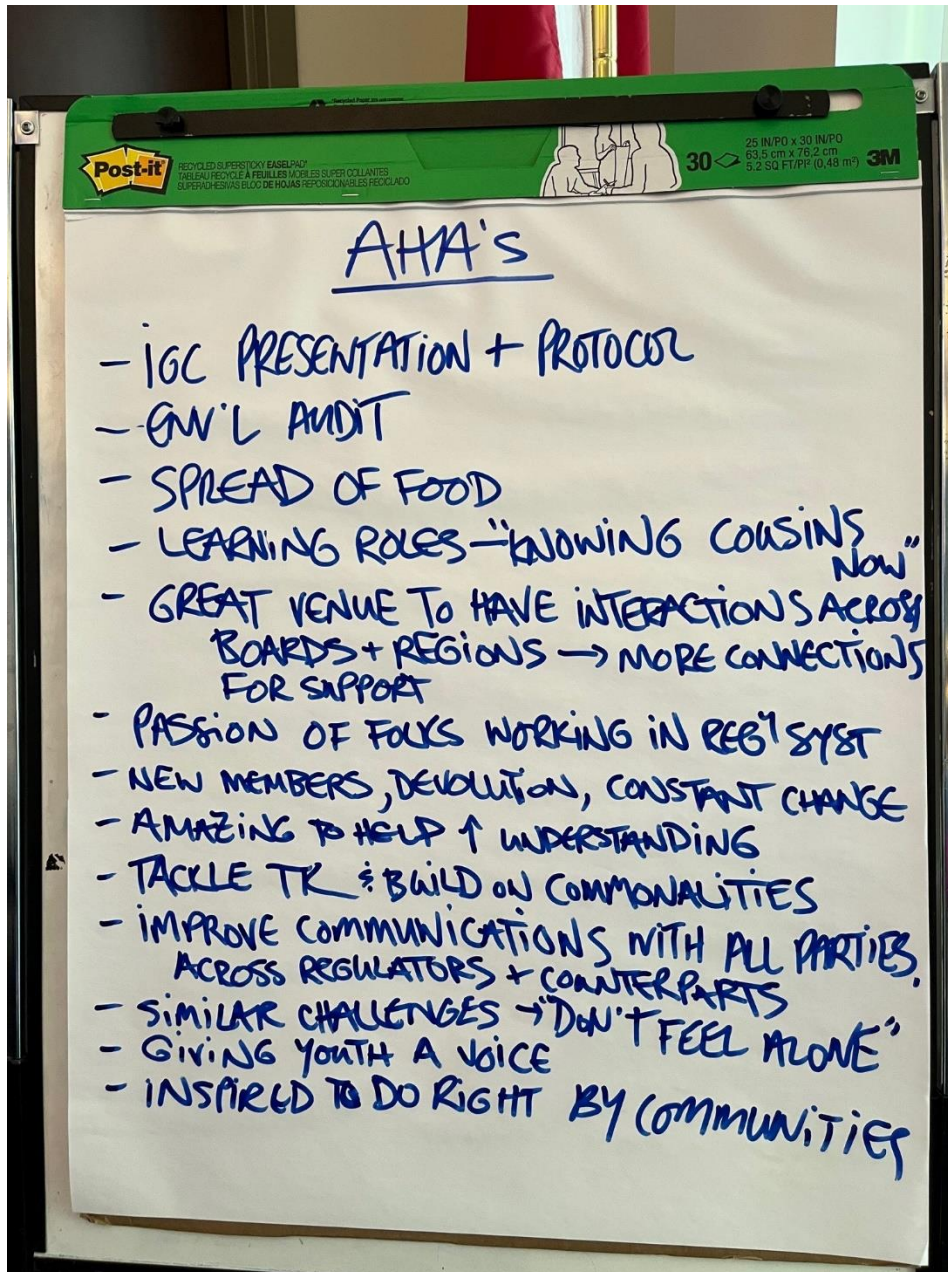 Post-it
RECYCLED SUPERSTICKY EASELPAD*
TABLEAU RECYCLÉ À FEUILLES MOBILES SUPER COLLANTES
SUPERADHESIVAS BLOC DE HOJAS REPOSICIONABLES RECICLADO
30
25 IN/PO x 30 IN/PO
63,5 cm x 76,2 cm
5.2 SQ FT/PI² (0,48 m²)
3M
AHA's
- IGC PRESENTATION + PROTOCOL
- ENV'L AUDIT
- SPREAD OF FOOD
- LEARNING ROLES - "KNOWING COUSINS
NOW"
- GREAT VENUE TO HAVE INTERACTIONS ACROSS
BOARDS + REGIONS → MORE CONNECTIONS
FOR SUPPORT
- PASSION OF FOLKS WORKING IN REG'Y SYST
- NEW MEMBERS, DEVOLUTION, CONSTANT CHANGE
- AMAZING TO HELP ↑ UNDERSTANDING
- TACKLE TK & BUILD ON COMMONALITIES
- IMPROVE COMMUNICATIONS WITH ALL PARTIES,
ACROSS REGULATORS + COUNTERPARTS
- SIMILAR CHALLENGES → "DON'T FEEL ALONE"
- GIVING YOUTH A VOICE
- INSPIRED TO DO RIGHT BY COMMUNITIES